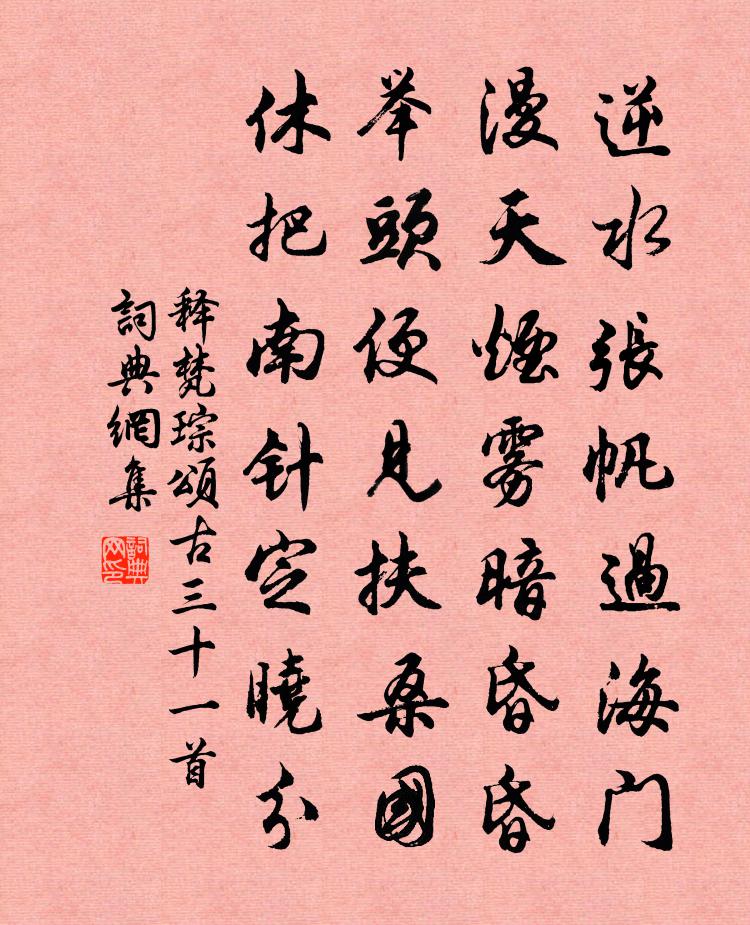 逆水張帆過海门
漫天煙雾暗昏昏
举頭便見扶桑國
休把南针定曉分
释梵琮頌古三十一首
詞典網集
詞典网印